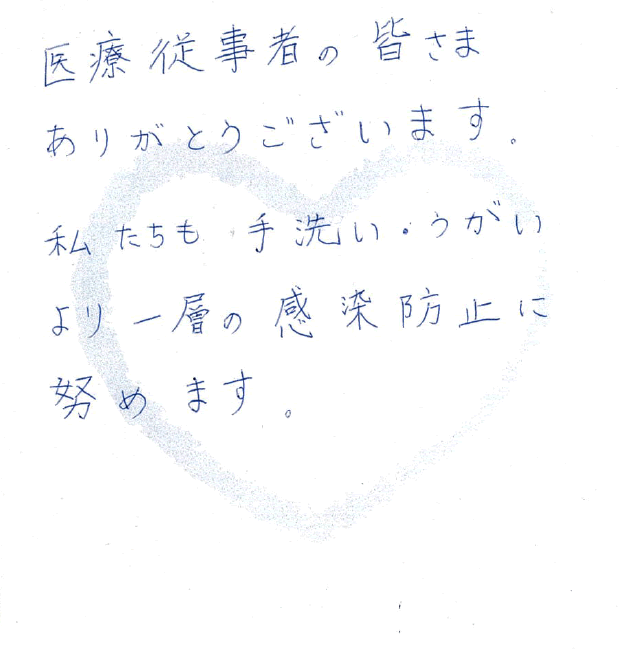 医療従事者の皆さま
ありがとうございます。
私たちも 手洗い・うがい
より一層の感染防止に
努めます。